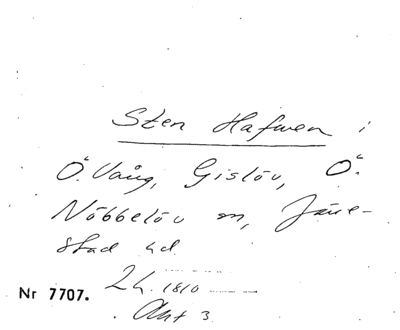 Sten Hafwen i
Ö. Vång, Gislöv, Ö.
Nöbbelöv m, Järre-
stad hd
24. 1810
Nr 7707.
Akt 3